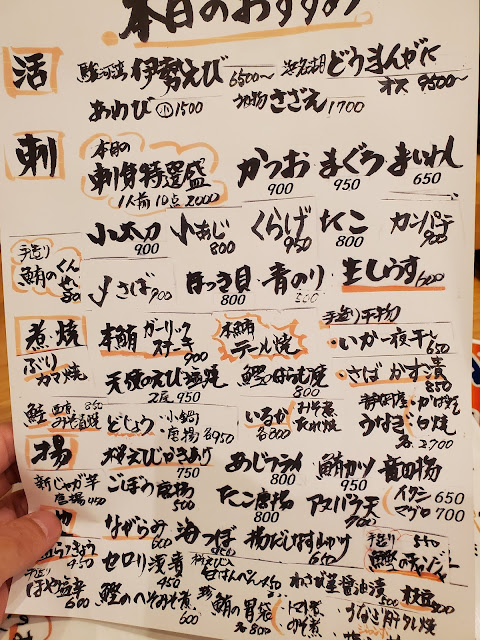 本日のおすすめ
活 駿河湾 伊勢えび 6500〜 浜名湖 どうまんがに オス 9500〜
あわび 小 1500 さざえ 1700
刺 本日の 刺身特選盛 1人前 10点 2000 かつお 900 まぐろ 950 まいわし 650
小太刀 900 小あじ 800 くらげ 950 たこ 800 カンパチ 900
手造り 鮪のくんせい 80
〆さば 900 ほっき貝 800 青のり 500 生しらす 600
煮 焼 本鮪 ガーリックステーキ 900 本鮪 テール焼 手造り干物 ・いか一夜干し 650
ぶりカマ焼 天使のえび塩焼 2尾 950 鰹のはらも焼 800 ・さばかす漬 850
鮭 西京 みそ漬焼 850 どじょう ・小鍋 ・唐揚 各950 いるか みそ煮 たれ焼 各800 静岡産・かば焼 うなぎ白焼 各2,700
揚 桜えびかきあげ 750 あじフライ 800 鮪カツ 900 竜田揚
新じゃが芋 唐揚 450 ごぼう唐揚 500 たこ唐揚 800 アスパラ天 700 イワシ 650 マグロ 700
ながらみ 600 海つぼ 揚だしなす山かけ 650 手造り 550
らっきょう 450 セロリ浅漬 450 桜えび入り 白はんぺん 450 わさび茎醤油漬 枝豆
手造り ほや塩辛 600 鰹のへそみそ煮 600 鮪の胃袋 各800 ・トマト煮 ・みそ煮 うなぎ肝タレ焼 800